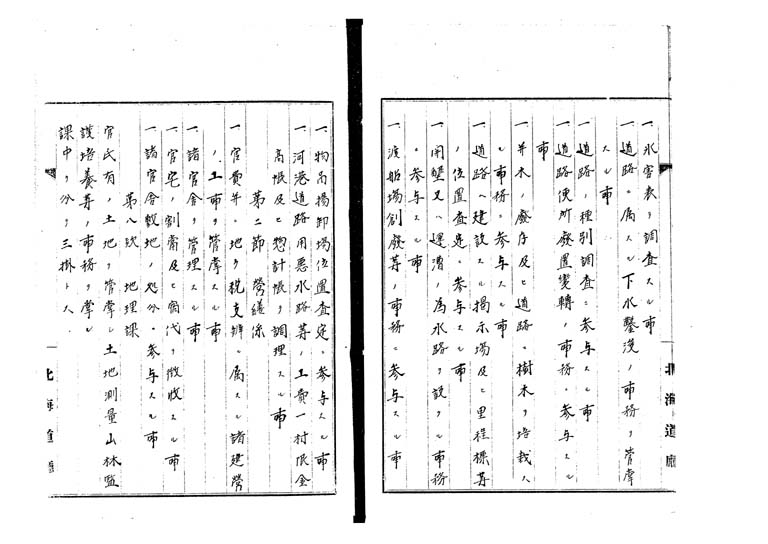 一 水害表ヲ調査スル事
一 道路ニ属スル下水鑿浚ノ事務ヲ管掌
スル事
一 道路ノ種別調査ニ参与スル事
一 道路便所廃置変轉ノ事務ニ参与スル
事
一 並木ノ廃存及ヒ道路ニ樹木ヲ培栽ス
ル事務ニ参与スル事
一 道路ヘ建設スル掲示場及ヒ里程標等
ノ位置査定ニ参与スル事
一 開鑿又ハ運漕ノ為水路ヲ設ル事務
ニ参与スル事
一 渡船場創廃等ノ事務ニ参与スル事
北海道廰
一 物品揚卸場位置査定ニ参与スル事
一 河港道路用悪水路等ノ工費一村限金
高帳及ヒ惣計帳ヲ調理スル事
第二節 營繕係
一 官費並ニ地方税支辨ニ属スル諸建営
ノ工事ヲ管掌スル事
一 諸官舎ヲ管理スル事
一 官宅ノ割渡及ヒ宿代ヲ徴收スル事
一 諸官舎敷地ノ処分ニ参与スル事
第八次 地理課
官民有ノ土地ヲ管掌シ土地測量山林監
護培養等ノ事務ヲ掌ル
課中ヲ分テ三掛トス
北海道廰